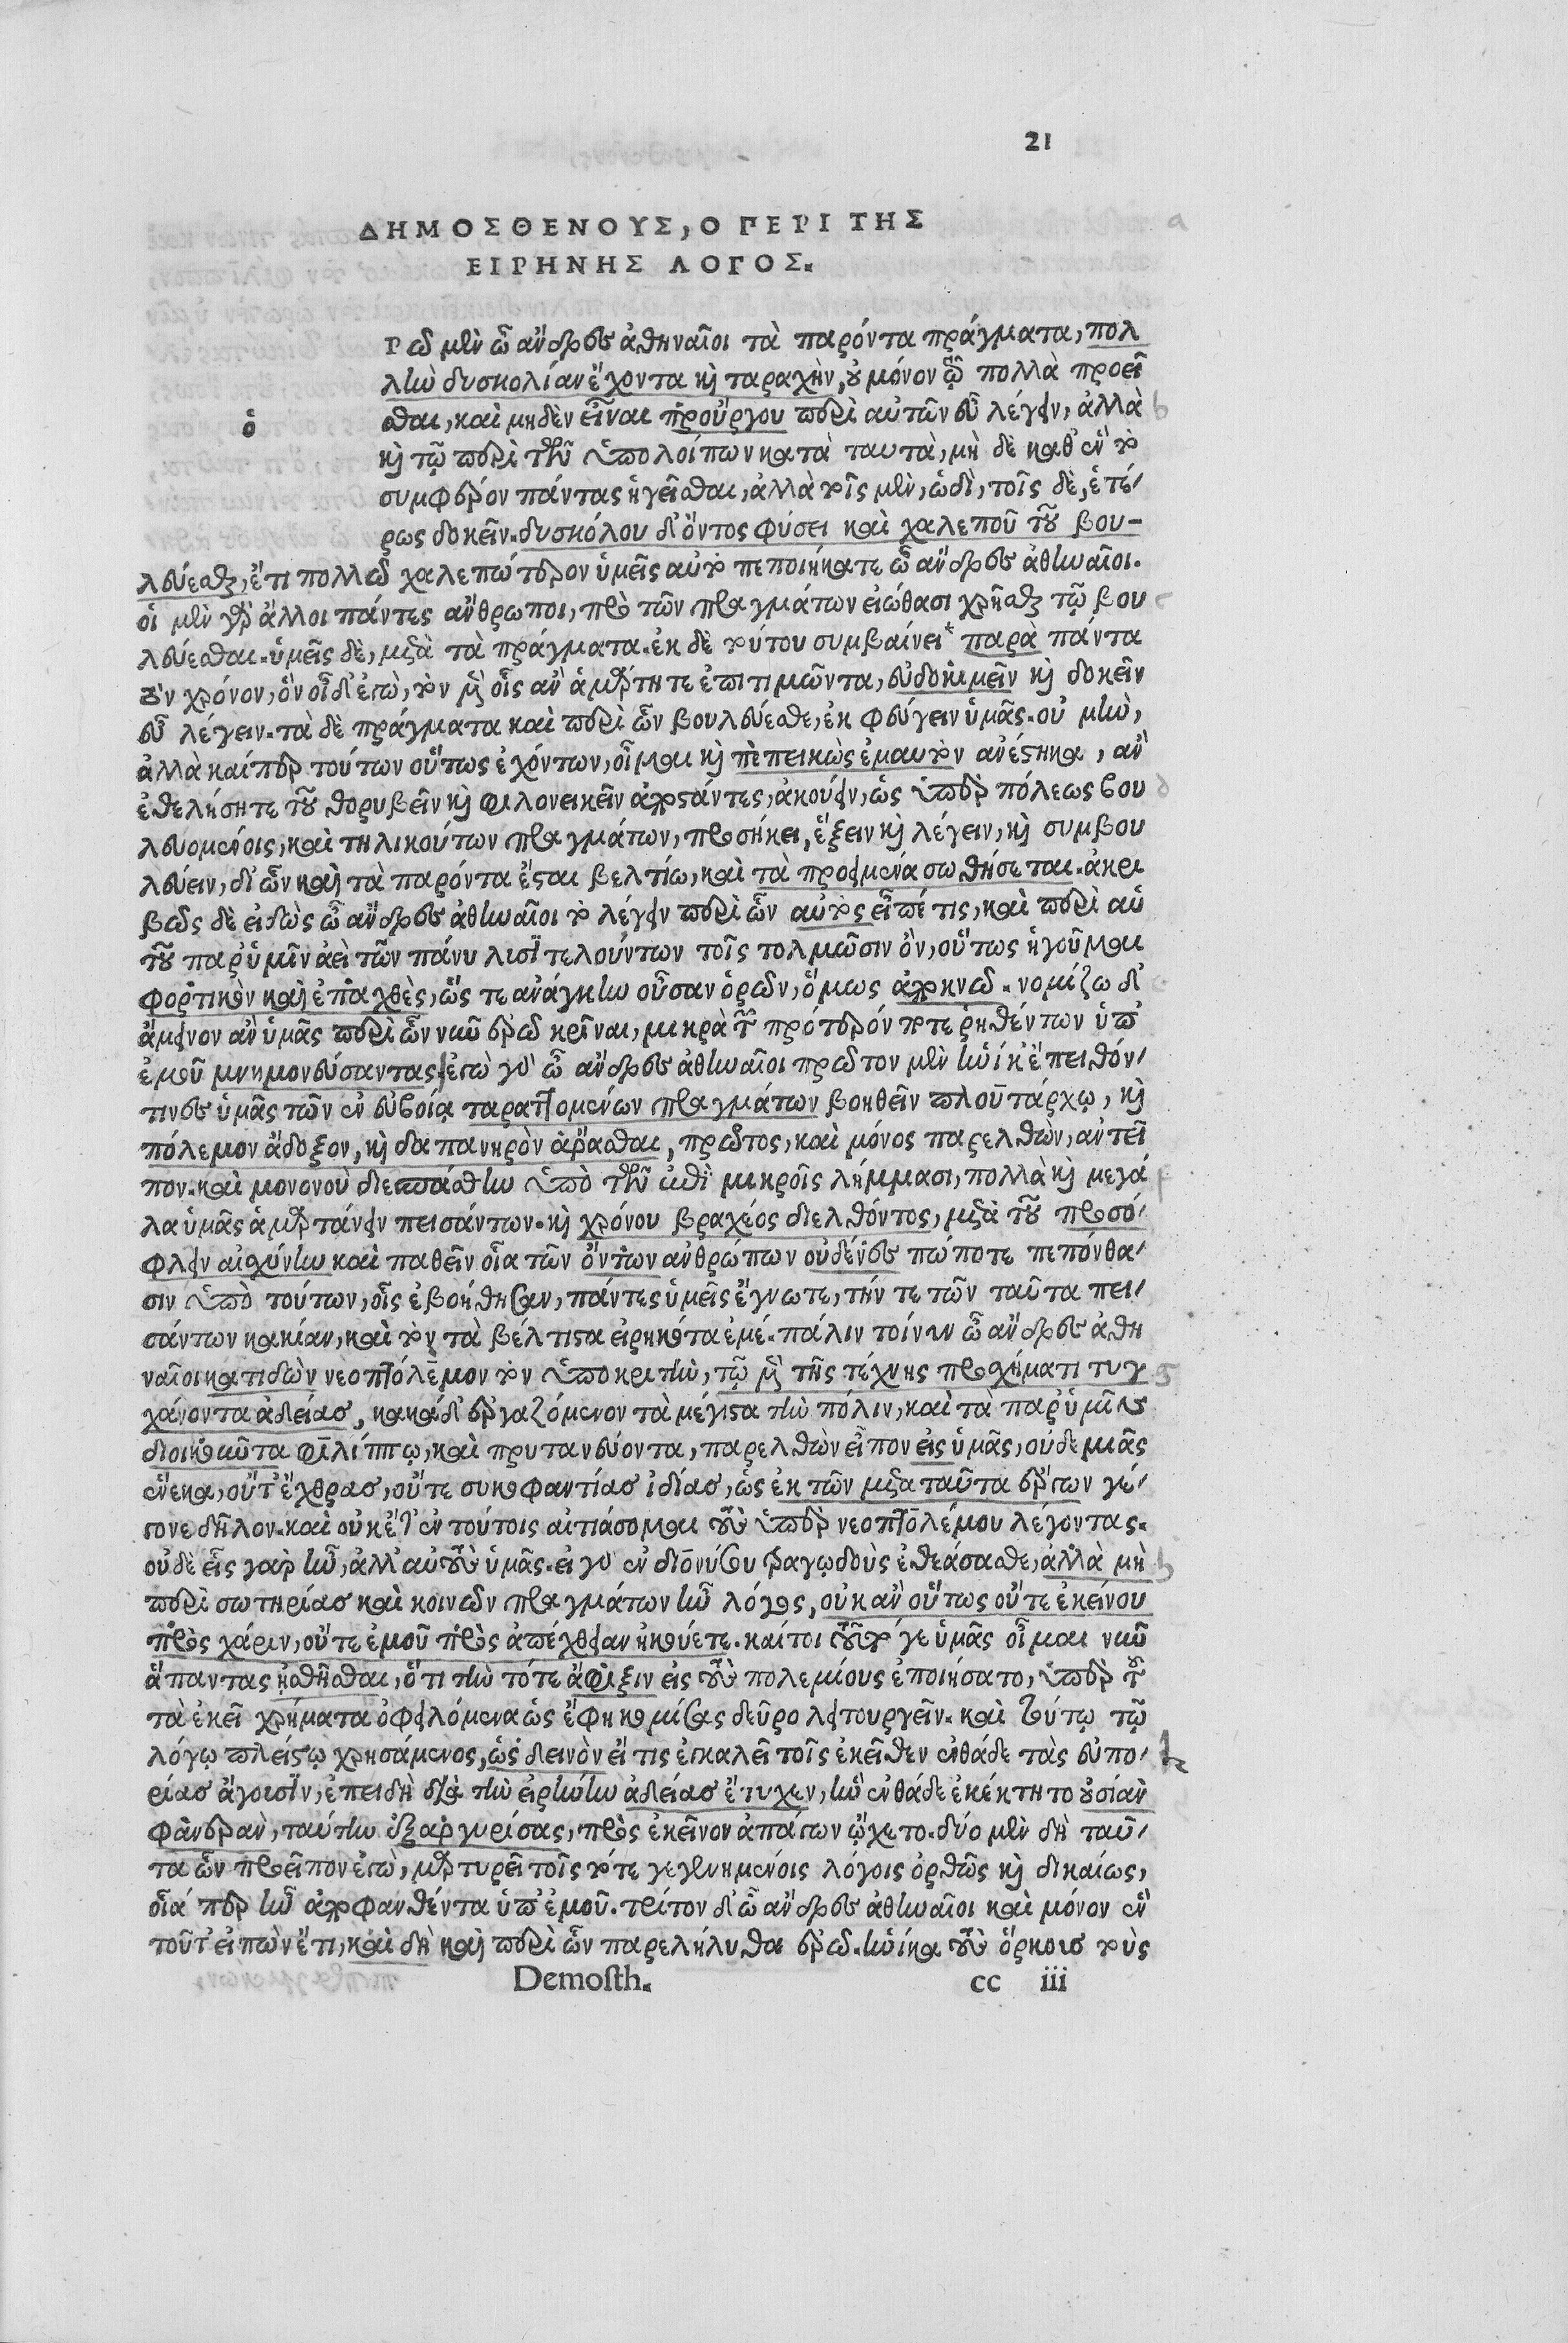 21
ΔΗΜΟΣΘΕΝΟΥΣ, Ο ΠΕΡΙ ΤΗΣ
ΕΙΡΗΝΗΣ ΛΟΓΟΣ.
ὁ
Ρῶ μὲν ὦ ἄνδρες ἀθηναῖοι τὰ παρόντα πράγματα, πολ
λὴν δυσκολίαν ἔχοντα καὶ ταραχὴν, οὐ μόνον τῷ πολλὰ προεῖ
σθαι, καὶ μηδὲν εἶναι προὔργου περὶ αὐτῶν εὖ λέγειν, ἀλλὰ
καὶ τῷ περὶ τῶν ὑπολοίπων κατὰ ταυτὰ, μὴ δὲ καθ' ἓν τὸ
συμφέρον πάντας ἡγεῖσθαι, ἀλλὰ τοῖς μὲν, ὡδὶ, τοῖς δὲ, ἑτέ-
ρως δοκεῖν. δυσκόλου δ' ὄντος φύσει καὶ χαλεποῦ τοῦ βου-
λεύεσθαι, ἔτι πολλῷ χαλεπώτερον ὑμεῖς αὐτὸ πεποιήκατε ὦ ἄνδρες ἀθηναῖοι.
οἱ μὲν γὰρ ἄλλοι πάντες ἄνθρωποι, πρὸ τῶν πραγμάτων εἰώθασι χρῆσθαι τῷ βου
λεύεσθαι. ὑμεῖς δὲ, μετὰ τὰ πράγματα. ἐκ δὲ τούτου συμβαίνει παρὰ πάντα
τὸν χρόνον, ὃν οἶδ' ἐγὼ, τὸν μὲν οἷς ἂν ἁμάρτητε ἐπιτιμῶντα, εὐδοκιμεῖν καὶ δοκεῖν
εὖ λέγειν. τὰ δὲ πράγματα καὶ περὶ ὧν βουλεύεσθε, ἐκφεύγειν ὑμᾶς. οὐ μὴν,
ἀλλὰ καίπερ τούτων οὕτως ἐχόντων, οἶμαι καὶ πεπεικὼς ἐμαυτὸν ἀνέστηκα, ἂν
ἐθελήσητε τοῦ θορυβεῖν καὶ φιλονεικεῖν ἀποστάντες, ἀκούειν, ὡς ὑπὲρ πόλεως βου
λευομένοις, καὶ τηλικούτων πραγμάτων, προσήκει, ἕξειν καὶ λέγειν, καὶ συμβου
λεύειν, δι' ὧν καὶ τὰ παρόντα ἔσται βελτίω, καὶ τὰ προειμένα σωθήσεται. ἀκρι
βῶς δὲ εἰδὼς ὦ ἄνδρες ἀθηναῖοι τὸ λέγειν περὶ ὧν αὐτὸς εἶπέ τις, καὶ περὶ αὑ
τοῦ παρ' ὑμῖν ἀεὶ τῶν πάνυ λυσιτελούντων τοῖς τολμῶσιν ὂν, οὕτως ἡγοῦμαι
φορτικὸν καὶ ἐπαχθὲς, ὥς τε ἀνάγκην οὖσαν ὁρῶν, ὅμως ἀποκνῶ. νομίζω δ'
ἄμεινον ἂν ὑμᾶς περὶ ὧν νῦν ἐρῶ κρῖναι, μικρὰ τῶν πρότερόν ποτε ῥηθέντων ὑπ'
ἐμοῦ μνημονεύσαντας. ἐγὼ γὰρ ὦ ἄνδρες ἀθηναῖοι πρῶτον μὲν ἡνίκ' ἔπειθόν-
τινες ὑμᾶς τῶν ἐν εὐβοίᾳ ταραττομένων πραγμάτων βοηθεῖν πλουτάρχῳ, καὶ
πόλεμον ἄδοξον, καὶ δαπανηρὸν ἄρασθαι, πρῶτος, καὶ μόνος παρελθὼν, ἀντεῖ
πον. καὶ μονονοὺ διεσπάσθην ὑπὸ τῶν ἐπὶ μικροῖς λήμμασι, πολλὰ καὶ μεγά
λα ὑμᾶς ἁμαρτάνειν πεισάντων. καὶ χρόνου βραχέος διελθόντος, μετὰ τοῦ προσό-
φλειν αἰσχύνην καὶ παθεῖν οἷα τῶν ὄντων ἀνθρώπων οὐδένες πώποτε πεπόνθα-
σιν ὑπὸ τούτων, οἷς ἐβοήθησαν, πάντες ὑμεῖς ἔγνωτε, τήν τε τῶν ταῦτα πει-
σάντων κακίαν, καὶ τὸν τὰ βέλτιστα εἰρηκότα ἐμέ. πάλιν τοίνυν ὦ ἄνδρες ἀθη
ναῖοι κατιδὼν νεοπτόλεμον τὸν ὑποκριτὴν, τῷ μὲν τῆς τέχνης προσχήματι τυγ
χάνοντα ἀδείας, κακὰ δ' ἐργαζόμενον τὰ μέγιστα τὴν πόλιν, καὶ τὰ παρ' ὑμῶν
διοικοῦντα φιλίππῳ, καὶ πρυτανεύοντα, παρελθὼν εἶπον εἰς ὑμᾶς, οὐδεμιᾶς
ἕνεκα, οὔτ' ἔχθρας, οὔτε συκοφαντίας ἰδίας, ὡς ἐκ τῶν μετα ταῦτα ἔργων γέ-
γονε δῆλον. καὶ οὐκέτ' ἐν τούτοις αἰτιάσομαι τοὺς ὑπὲρ νεοπτολέμου λέγοντας.
οὐδὲ εἷς γὰρ ἦν, ἀλλ' αὐτοὺς ὑμᾶς. εἰ γὰρ ἐν διονύσου τραγῳδοὺς ἐθεάσασθε, ἀλλὰ μὴ
περὶ σωτηρίας καὶ κοινῶν πραγμάτων ἦν λόγος, οὐκ ἂν οὕτως οὔτε ἐκείνου
πρὸς χάριν, οὔτε ἐμοῦ πρὸς ἀπέχθειαν ἠκούετε. καίτοι τοῦτό γε ὑμᾶς οἶμαι νῦν
ἅπαντας ᾐσθῆσθαι, ὅτι τὴν τότε ἄφιξιν εἰς τοὺς πολεμίους ἐποιήσατο, ὑπὲρ τοῦ
τὰ ἐκεῖ χρήματα ὀφειλόμενα ὡς ἔφη κομίσας δεῦρο λειτουργεῖν. καὶ τούτῳ τῷ
λόγῳ πλείστῳ χρησάμενος, ὡς δεινὸν εἴ τις ἐγκαλεῖ τοῖς ἐκεῖθεν ἐνθάδε τὰς εὐπο-
ρίας ἄγουσιν, ἐπειδὴ διὰ τὴν εἰρήνην ἀδείας ἔτυχεν, ἣν ἐνθάδε ἐκέκτητο οὐσίαν
φανερὰν, ταύτην ἐξαργυρίσας, πρὸς ἐκεῖνον ἀπάγων ᾤχετο. δύο μὲν δὴ ταῦ-
τα ὧν προεῖπον ἐγὼ, μαρτυρεῖ τοῖς τότε γεγενημένοις λόγοις ὀρθῶς καὶ δικαίως,
οἷά περ ἦν ἀποφανθέντα ὑπ' ἐμοῦ. τρίτον δ' ὦ ἄνδρες ἀθηναῖοι καὶ μόνον ἓν
τοῦτ' εἰπὼν ἔτι, καὶ δὴ καὶ περὶ ὧν παρελήλυθα ἐρῶ. ἡνίκα τοὺς ὅρκους τοὺς
Demosth. cc iii